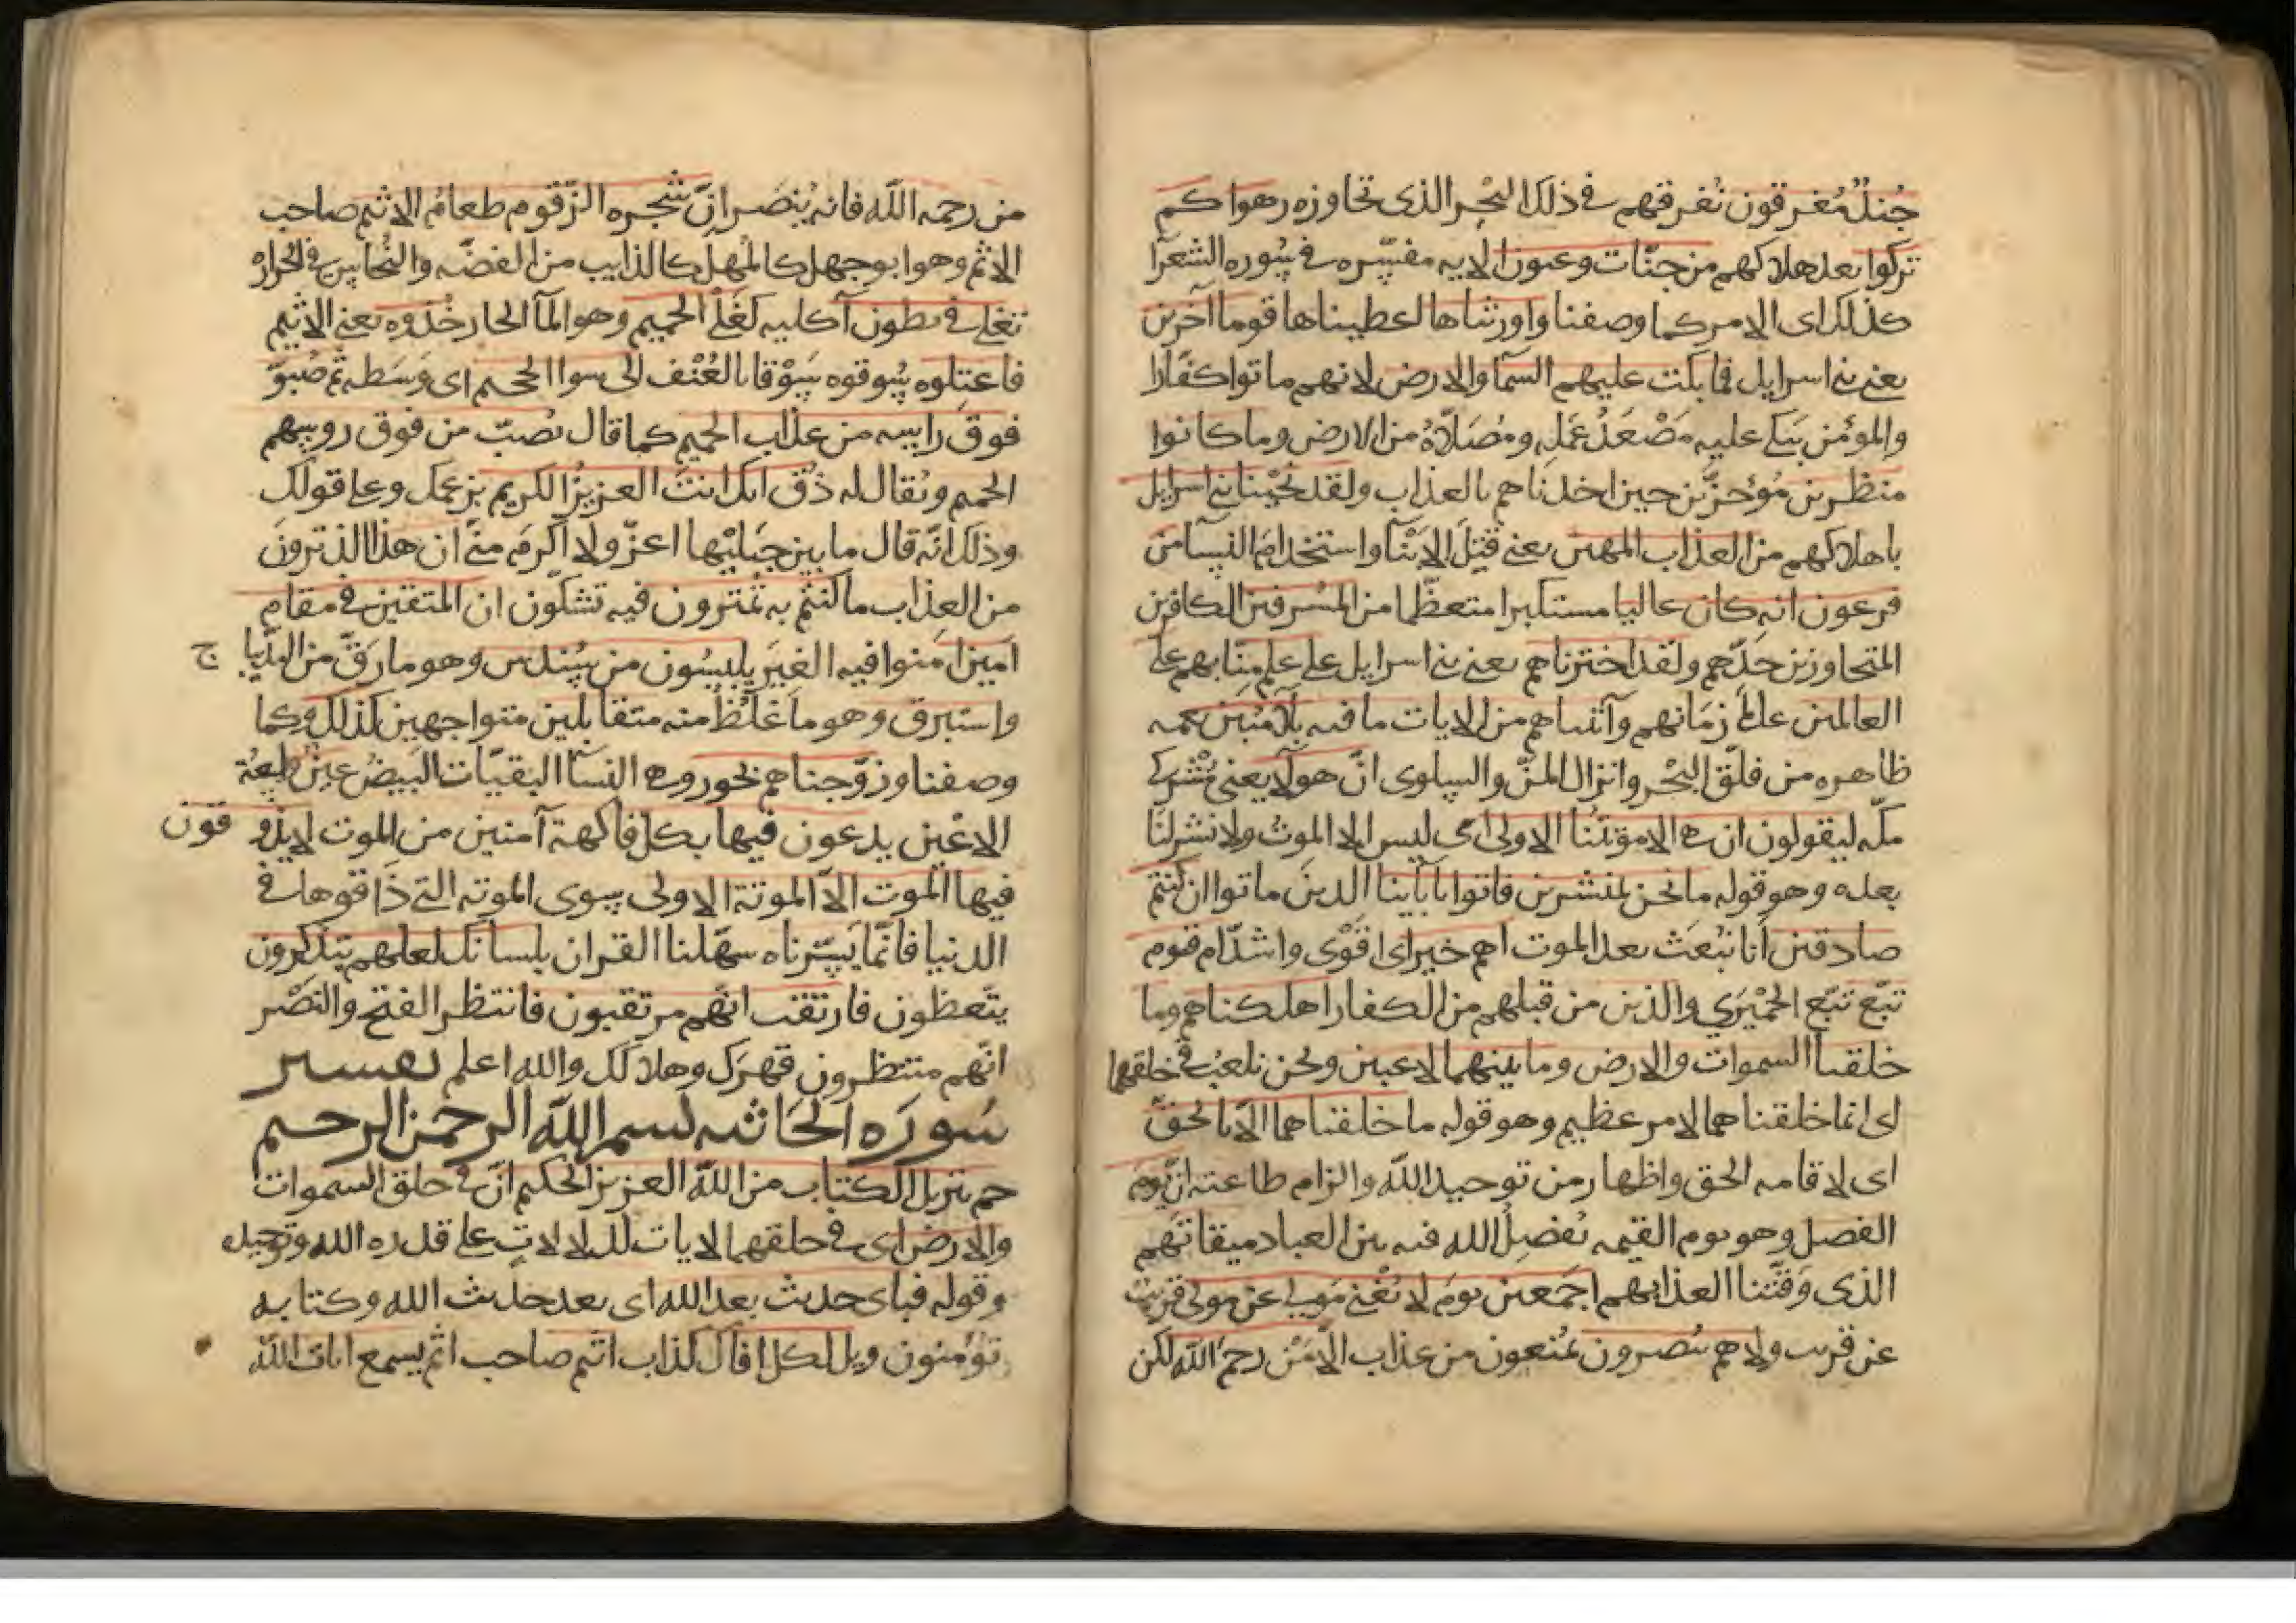 جُندٌ مُغرقون نُغرقهم في ذلك البحر الذي تجاوزه رهوا كم
تركوا بعد هلاكهم من جنّات وعيون الآيه مفسّره في سُوره الشعرآ
كذلك اى الامر كما وصفنا واورثناها اعطيناها قوما آخرين
يعنى بنى اسرايل فما بكت عليهم السمآ والارض لانهم ماتوا كفّارًا
والمؤمن يبكى عليه مَصْعَدُ عَمَله ومُصَلّاهُ من الارض وما كانوا
منظرين مُؤخّرين حين اخذناهم بالعذاب ولقد نجّينا بنى اسرايل
باهلاكهم من العذاب المهين يعنى قَتْلَ الابْنآ واستخدامَ النسآ من
فرعون انه كان عاليا مستكبرا متعظّما من المسْرفين الكافرين
المتجاوزين حَدّهم ولقد اخترناهم يعنى بنى اسرايل على علم منّا بهم على
العالمين عالمى زمَانهم وآتيناهم من الايات ما فيه بلآ مُبين نعمه
ظاهره من فلَق البَحْر وانزال المنّ والسلوى انّ هولآ يعنى مُشركى
مكّه ليقولون ان هى الا موتتُنا الاولى اى ليس الا الموتُ ولا نشر لنا
بعده وهو قوله ما نحن بمنشرين فاتوا بآبآينا الذين ماتوا ان كنتم
صادقين انّا نبْعَث بعد الموت اهم خير اى اقوَى واشدّ ام قوم
تبّع تبّع الحِمْيَرى والذين من قبلهم من الكفار اهلكناهم وما
خلقنا السموات والارض وما بينهما لاعبين ونحن نلعبُ في خلقهما
اى انما خلقناهما لامر عظيم وهو قوله ما خلقناهما الا بالحقّ
اى لاقامه الحق واظهار من توحيد اللّه والزام طاعته انّ يوم
الفصل وهو يوم القيمه يُفصِلُ الله فيه بين العباد ميقاتهم
الذى وَقّتنا لعذابهم اجمَعين يومَ لا يُغْنى مَولى عن مولى قريبٌ
عن قريب ولاهم ينصرون يُمنعون من عذاب الا مَنْ رحمَ اللّه لكن
من رحمه اللّه فانه يُنصَر انّ شجره الزّقّوم طعامُ الاثيم صاحب
الاثم وهو ابو جهل كالمهل كالذايب من الفضّه والنُّحاس في الحراره
تغلى في بطون آكليه كغَلْى الحميم وهو المآ الحار خُذوه يعنى الاثيم
فاعتلوه سُوقوه سَوْقا بالعُنْف الى سوا الجحيم اى وَسَطه ثم صُبوّ
فوقَ رايسه من عذاب الحميم كما قال يُصبّ من فوق روسهم
الحميم ويُقال له ذُق انك انتَ العزيزُ الكريم بزعمك وعلى قولك
وذلك انّه قال ما بين جَبليْها اعزّ ولا اكرمَ منى ان هذا الذى ترونَ
من العذاب ما كنتم به تمترون فيه تشكّون ان المتقين في مقام
امين امنوا فيه الغِيَر يلبسُون من سُندس وهو ما رَقّ من الديبا ج
واستبرق وهو ما غَلُظَ منه متقابلين متواجهين كذلك وكما
وصفنا وزوّجناهم بحُور وهى النسآ النقيّات البَيضُ عِينٌ
الاعْين يدعون فيها بكل فاكهة آمنين من الموت لايذو قون
فيها الموت الّا الموتة الاولى سوى الموته التى ذَاقوها في
الدنيا فانّما يَسّرناه سهّلنا القران بلسانك لعلهم يتذكرون
يتّعظون فارتقب انهم مرتقبون فانتظر الفتح والنَصْر
انّهم منتظرون قهرَك وهلاكك والله اعلم تفسير
سُورَه الجاثيه بسم اللّه الرحمن الرحيم
حم تنزيل الكتاب من اللّه العزيز الحكيم انّ في خلق السموات
والارض اى في خلقهما لايات لدلالاتٍ على قدره الله وتوحيده
وقوله فباى حديث بعد الله اى بعد حديث الله وكتابه
تؤمنون ويل لكل افاك كذاب اثيم صاحب اثم يسمع ايات اللّه